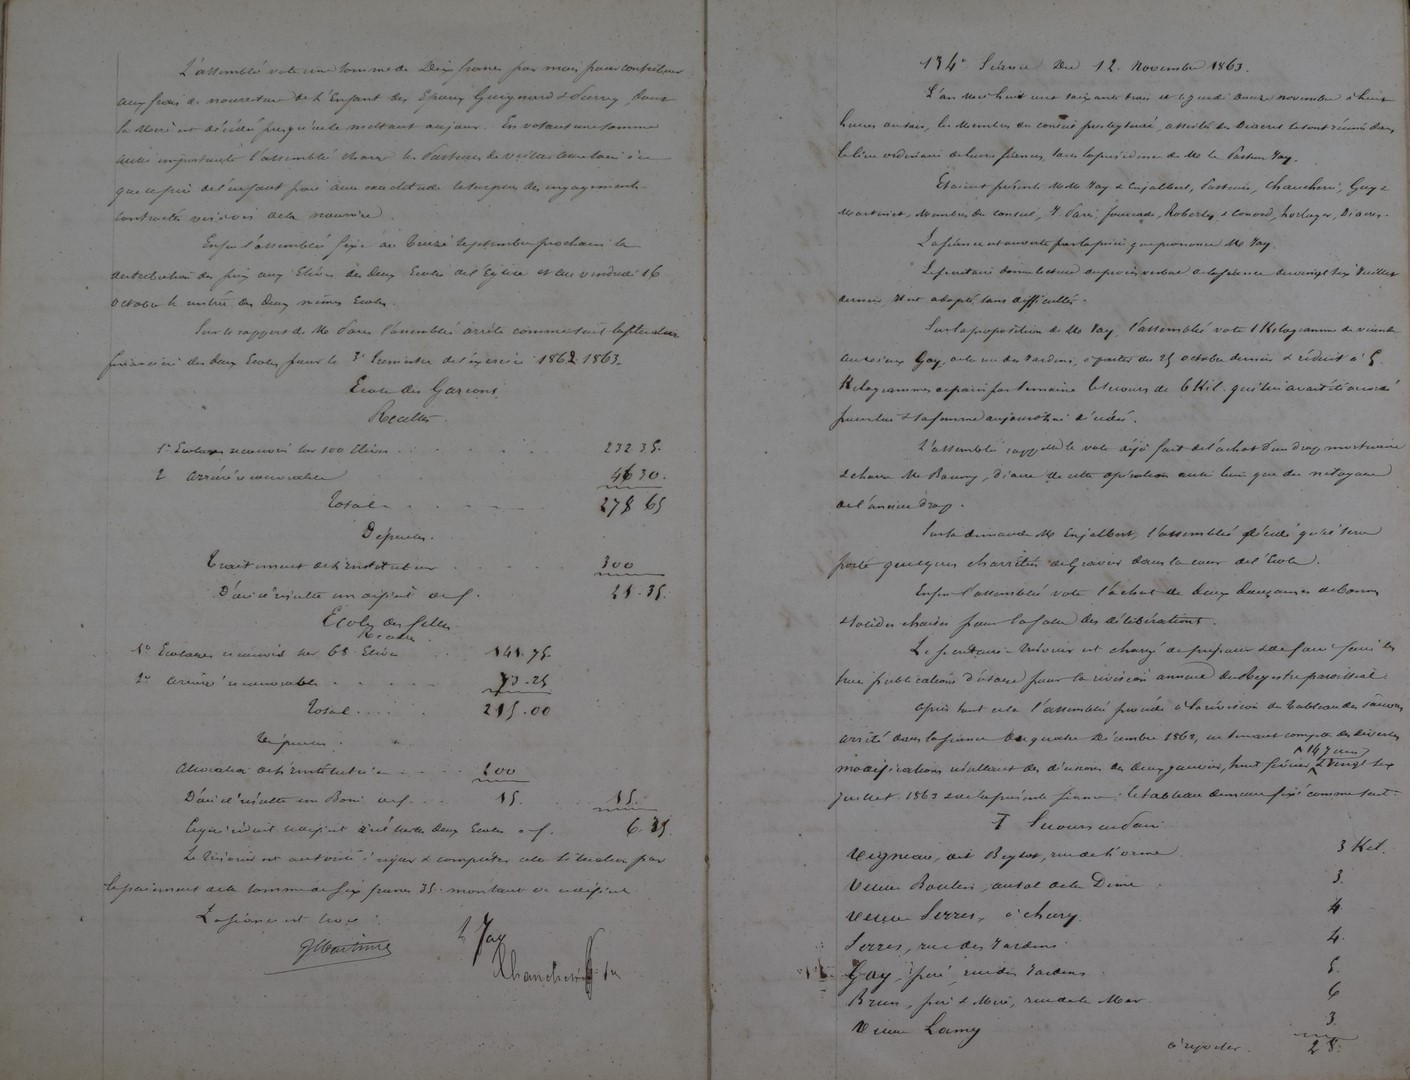 L'assemblée vote une somme de Dix francs par mois pour contribuer
aux frais de nourriture de l'Enfant des Epoux Guignard &
la Mère est décédée presqu'en le mettant au jour. En votant une somme
aussi importante l'assemblée charge les Pasteurs de veiller avec soin à ce
que le père de l'enfant paie avec exactitude le surplus des engagements
contractés vis à vis de la nourrice.
Enfin l'assemblée fixe au Treize septembre prochain la
distribution des prix aux Elèves des Deux Ecoles de l'Eglise et au vendredi 16
octobre la rentrée des Deux mêmes Ecoles.
Sur le rapport de Mr Paris l'assemblée arrête comme suit la situation
financière des deux Ecoles pour le 3e Trimestre de l'exercice 1862-1863.
Ecole des Garçons
Recettes
1° Ecolages recouvrés sur 100 Elèves 232 35.
2 Arriéré recouvrable 46 30.
Total 278 65
Dépenses.
Traitement de l'instituteur 300
D'où il résulte un déficit de f. 21.35.
Ecole des filles
Recettes
1° Ecolages recouvrés sur 68 Elèves 141.75.
2° Arriéré recouvrable 73.25
Total 215.00
Dépenses.
Allocation de l'institutrice 200
D'où il résulte un Boni de f. 15. 15.
Ce qui réduit le déficit réel sur les deux Ecoles à f. 6.35.
Le Trésorier est autorisé à régler & compléter cette situation par
le paiement de la somme de six francs 35. montant du déficit.
La séance est levée.
J Martinet
L Jay
Chancherie
134e Séance Du 12 Novembre 1863.
L'an Mil huit cent soixante trois et le jeudi douze novembre à huit
heures du soir, les Membres du conseil presbytéral, assistés des Diacres se sont réunis dans
le lieu ordinaire de leurs séances, sous la présidence de Mr le Pasteur Jay.
Etaient présents MM Jay & Enjalbert, Pasteurs, Gay &
Martinet, Membres du Conseil, Roberty & horloger, Diacres.
La séance est ouverte par la prière que prononce Mr Jay.
Le secrétaire donne lecture du procès verbal de la séance du vingt six Juillet
dernier. Il est adopté sans difficultés.
Sur la proposition de Mr Jay, l'assemblée vote 1 Kilogramme de viande
au sieur Gay, de la rue des Jardins, à partir du 25 octobre dernier & réduit à 5
Kilogrammes de pain par semaine le secours de 6 Kil. qui lui avait été accordé
pour lui & sa femme aujourd'hui décédée.
L'assemblée rappelle le vote déjà fait de l'achat d'un drap mortuaire
& charge Mr diacre de cette opération aussi bien que du nettoyage
de l'ancien drap.
Sur la demande de Mr Enjalbert, l'assemblée décide qu'il sera
porté quelques charretées de Gravier dans la cour de l'Ecole.
Enfin l'assemblée vote l'achat de deux douzaines de bonnes
& solides chaises pour la salle des délibérations.
Le secrétaire-Trésorier est chargé de préparer & de faire faire les
trois publications d'usage pour la révision annuelle du Registre paroissial.
Après tout cela l'assemblée procède à la révision du tableau des secours
arrêté dans la séance du quatre Décembre 1862, en tenant compte des diverses
modifications résultant des décisions des deux janvier, huit février, ^14 juin & vingt six
juillet 1863 & de la présente séance. Le tableau demeure fixé comme suit:
I Secours en Pain
Vigneau, dit Beylot, rue de l'orme 3 Kil.
Veuve Boutin, au sol de la Dime 3.
Veuve Serres, à 4
Serres, rue des Jardins 4.
Gay, père, rue des Jardins 5.
Brun, père & Mère, rue de la Mar 6
Veuve Lamy 3.
à reporter. 28.